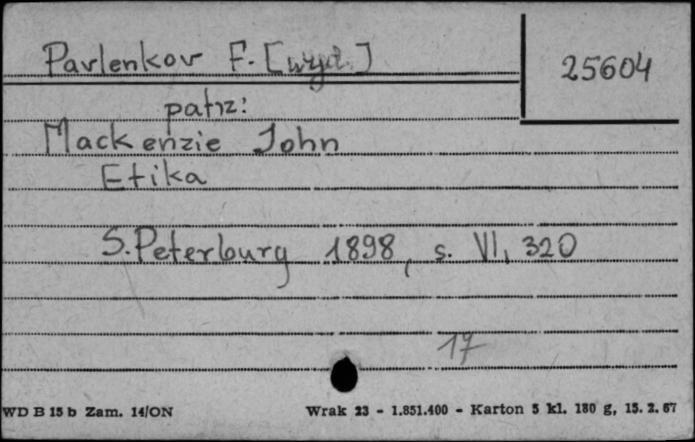 Pavlenkov F. [wyd.]
25604
patrz:
Mackenzie John
Etika
S. Peterburg 1898, s. VI, 320
17
WD B 15 b Zam. 14/ON
Wrak 23 - 1.851.400 - Karton 5 kl. 180 g, 15. 2. 67